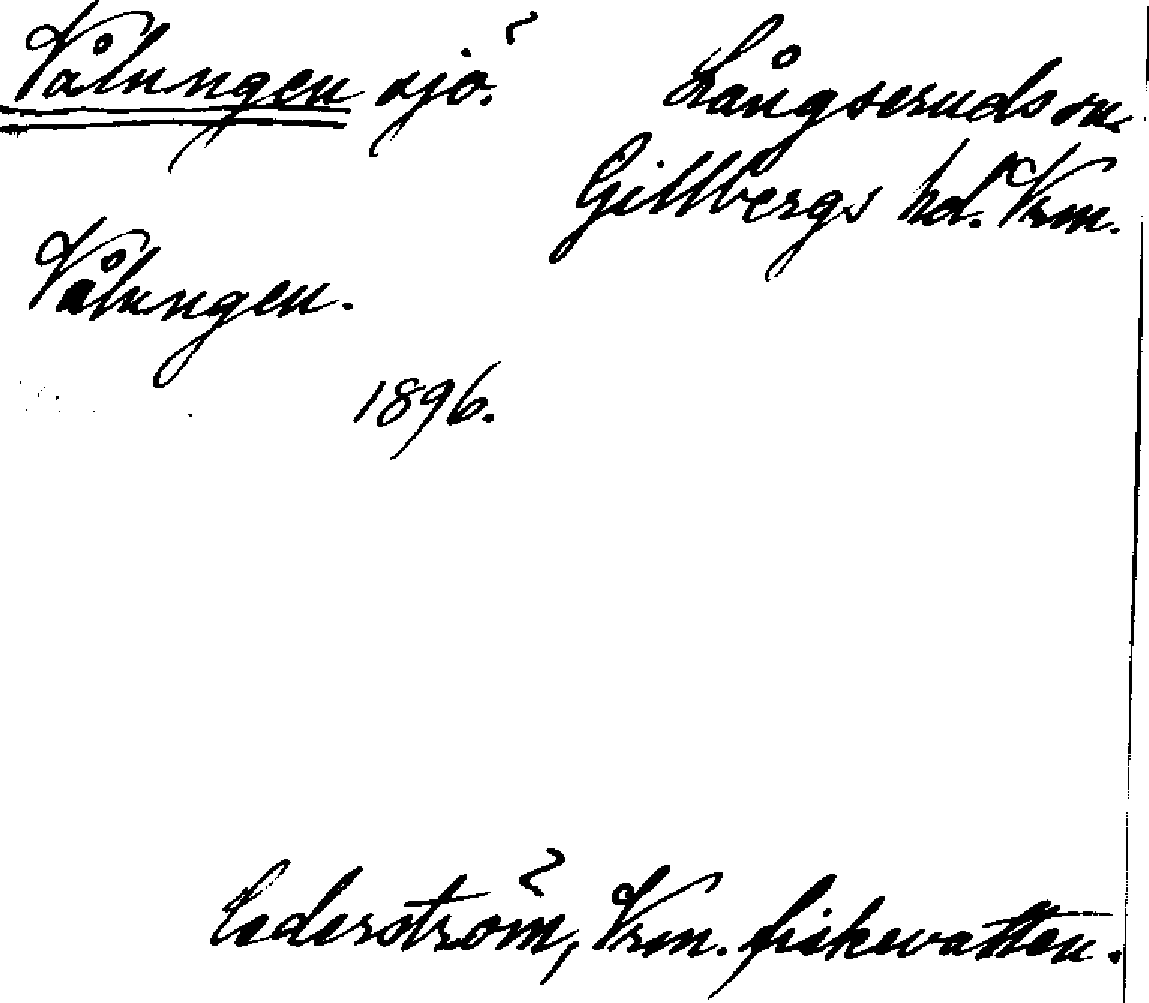 Vålungen sjö. Långseruds sn.
Gillbergs hd. Vrm.
Vålungen.
1896.
Cederström, Vrm. fiskevatten.